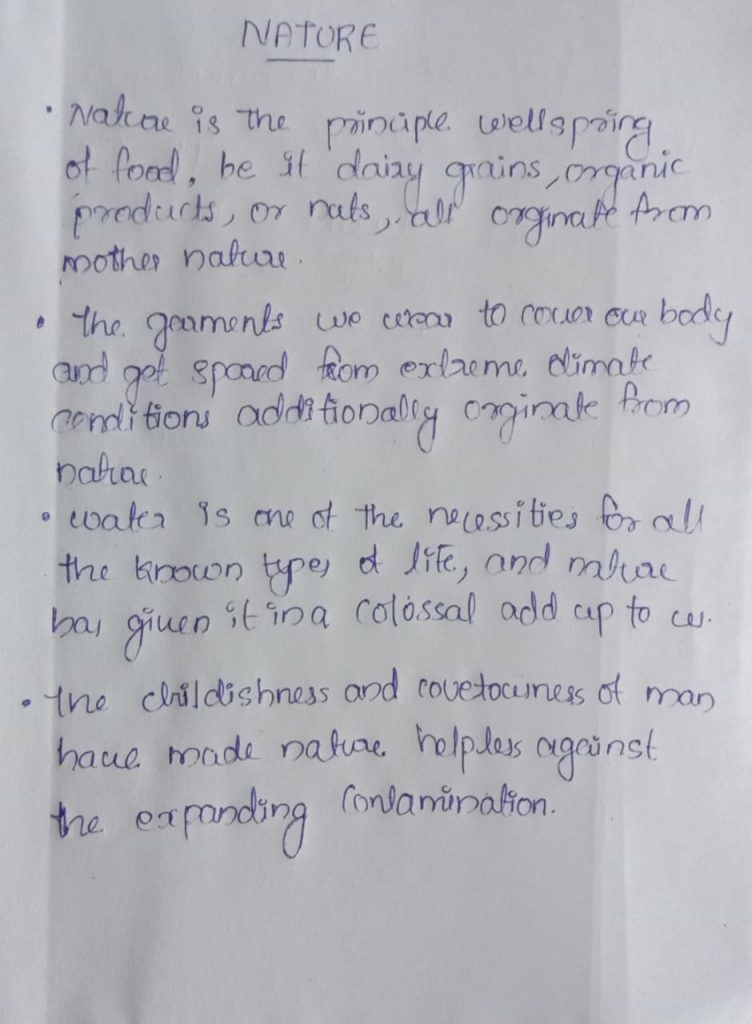 NATURE
• Nature is the principle wellspring
of food, be it dairy grains, organic
products, or nuts, all orginate from
mother nature.
• The garments we wear to cover our body
and get spared from extreme climate
conditions additionally orginate from
nature.
• water is one of the necessities for all
the known types of life, and nature
has given it in a colossal add up to us.
• The childishness and covetousness of man
have made nature helpless against
the expanding contamination.